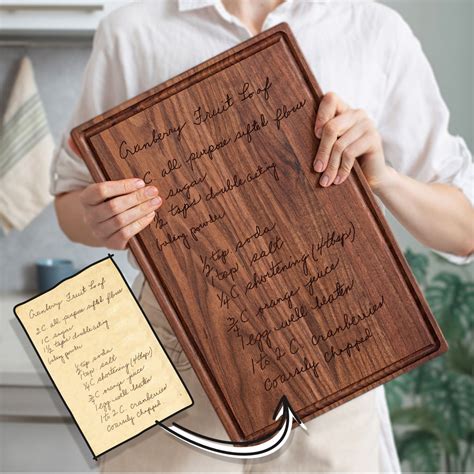 Cranberry Fruit Loaf
2 C all-purpose sifted flour
1 C sugar
1½ tsps double acting
baking powder
½ tsp soda
1 tsp salt
¼ C shortening (4 tbsps)
¾ C orange juice
1 egg well beaten
1 to 2 C. cranberries
coarsely chopped.
Cranberry Fruit Loaf
2 C all-purpose sifted flour
1 C sugar
1½ tsps double acting
baking powder
½ tsp soda
1 tsp salt
¼ C shortening (4 tbsps)
¾ C orange juice
1 egg well beaten
1 to 2 C. cranberries
coarsely chopped.